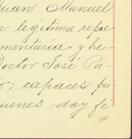 Juan Manuel
legitima repre
mentaria y he
Doctor José Pa
capaces pa
quienes doy fé